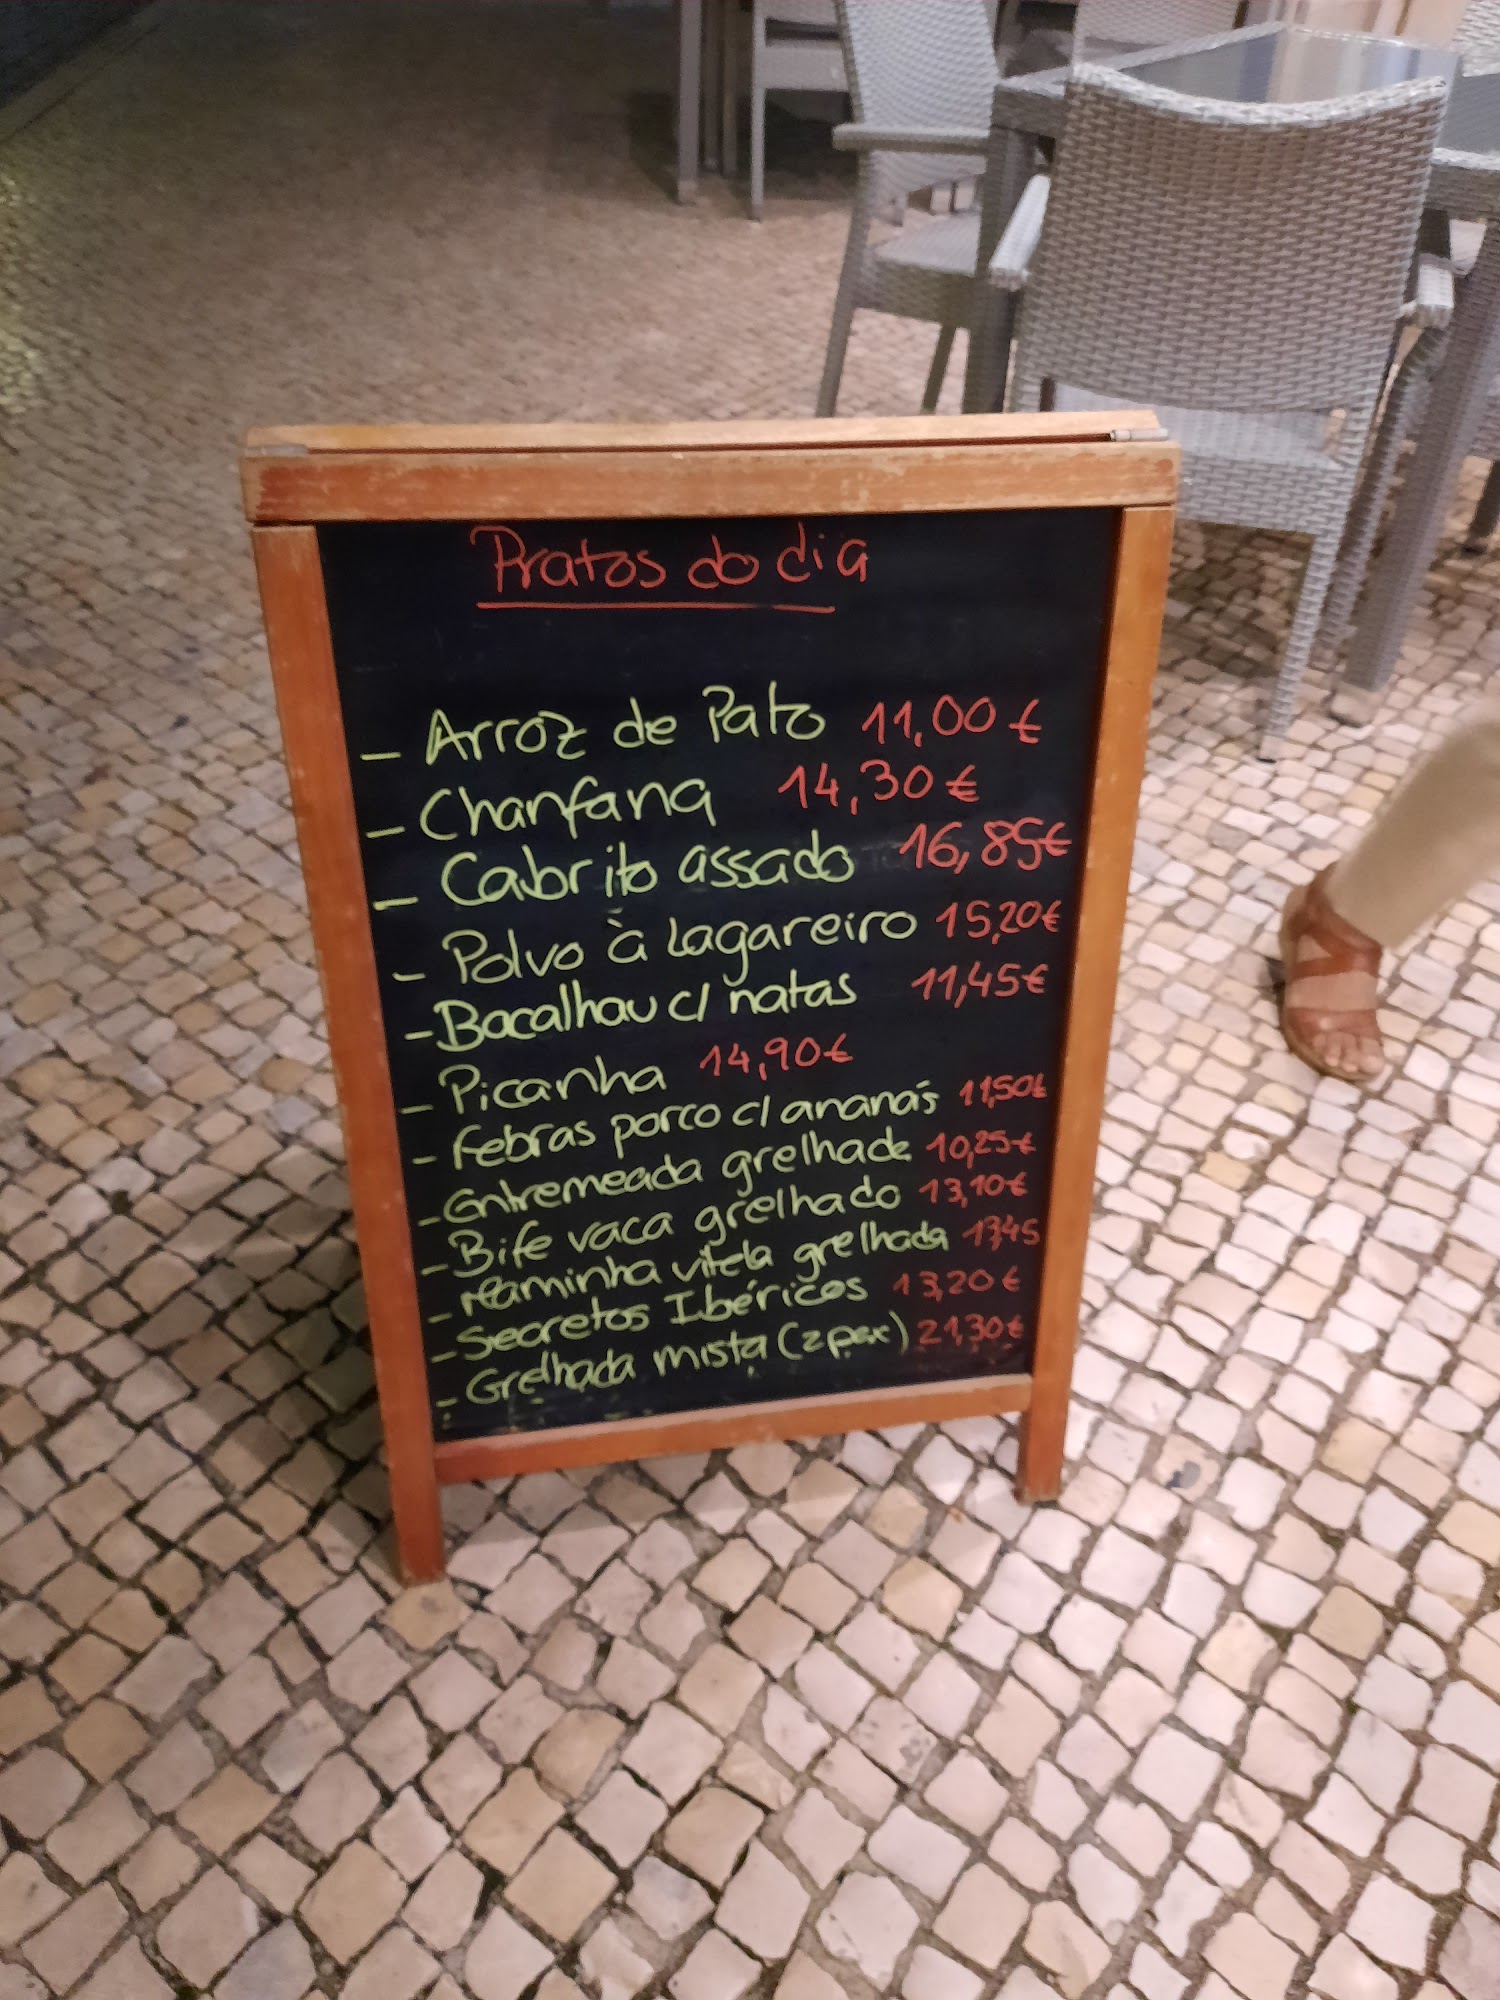 Pratos do dia
- Arroz de Pato 11,00 €
- Chanfana 14,30 €
- Cabrito assado 16,85€
- Polvo à Lagareiro 15,20€
- Bacalhau c/ natas 11,45€
- Picanha 14,90€
- Febras porco c/ ananás 11,50€
- Entremeada grelhada 10,25€
- Bife vaca grelhado 13,10€
- Maminha vitela grelhada 13,45
- Secretos Ibéricos 13,20€
- Grelhada mista (2 pax) 21,30€